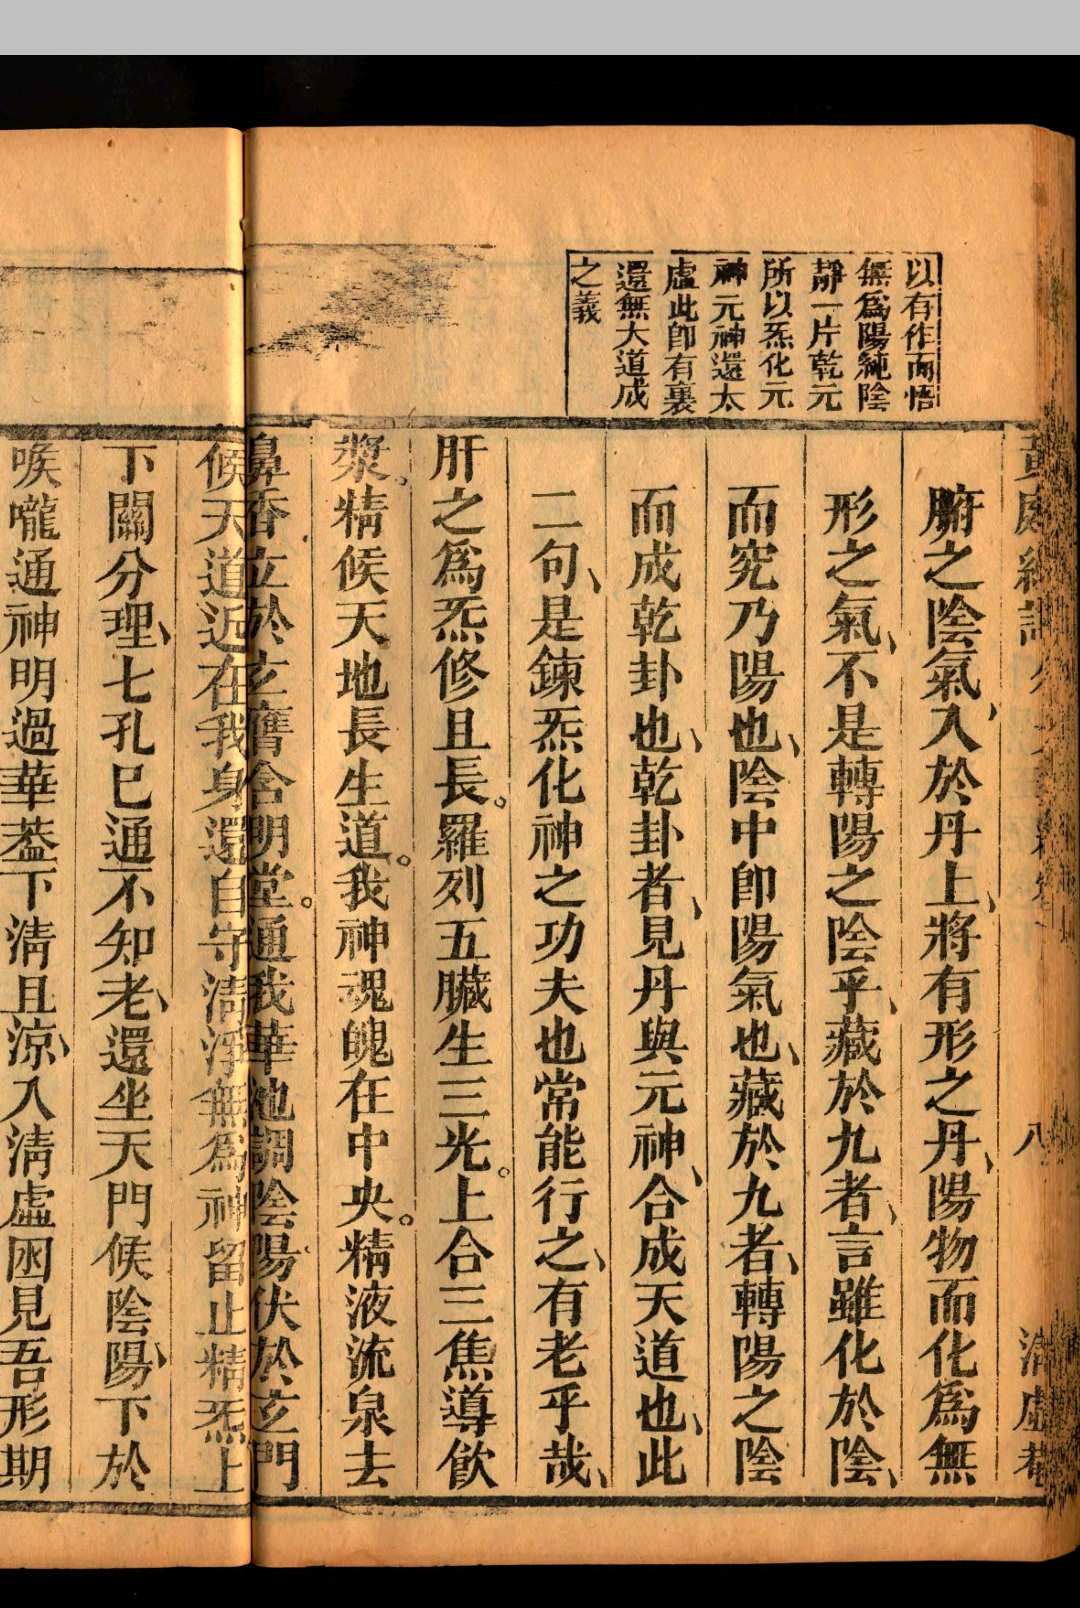 以有作而悟
無爲陽純陰
靜一片乾元
所以炁化元
神元神還太
虛此卽有裏
還無大道成
之義
腑之陰氣、入於丹上、將有形之丹、陽物而化爲無
形之氣、不是轉陽之陰乎、藏於九者、言雖化於陰、
而究乃陽也、陰中卽陽氣也、藏於九者、轉陽之陰
而成乾卦也、乾卦者、見丹與元神、合成天道也、此
二句、是鍊炁化神之功夫也常能行之、有老乎哉、
肝之爲炁修且長。羅列五臟生三光。上合三焦導飲
漿。精候天地長生道。我神魂魄在中央。精液流泉去
鼻香立於玄膺含明堂。通我華池調陰陽伏於玄門
候天道近在我身還自守清淨無爲神留止精炁上
下關分理、七孔已通不知老、還坐天門候陰陽、下於
喉嚨通神明過華葢下清且涼、入清虛困見吾形期
八